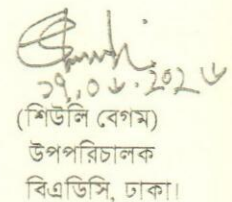 ১৭.০৬.২০২৬
(শিউলি বেগম)
উপপরিচালক
বিএডিসি, ঢাকা।